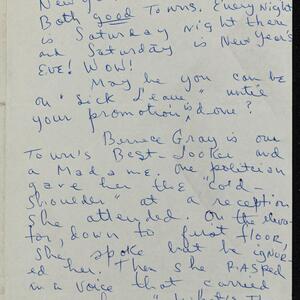 New Yo
Both good Towns. Every Night
is Saturday Night there
and Saturday is New Year's
Eve! Wow!
May be you can be
on "Sick Leave" until
your promotion is done?
Bernece Gray is one
Town's Best-Looker and
a Madame. One politician
gave her the "cold-
shoulder" at a reception
she attended. On the eleva-
tor, down to first floor,
she spoke but he ignor-
ed her. Then she RASPED
in a voice that carried